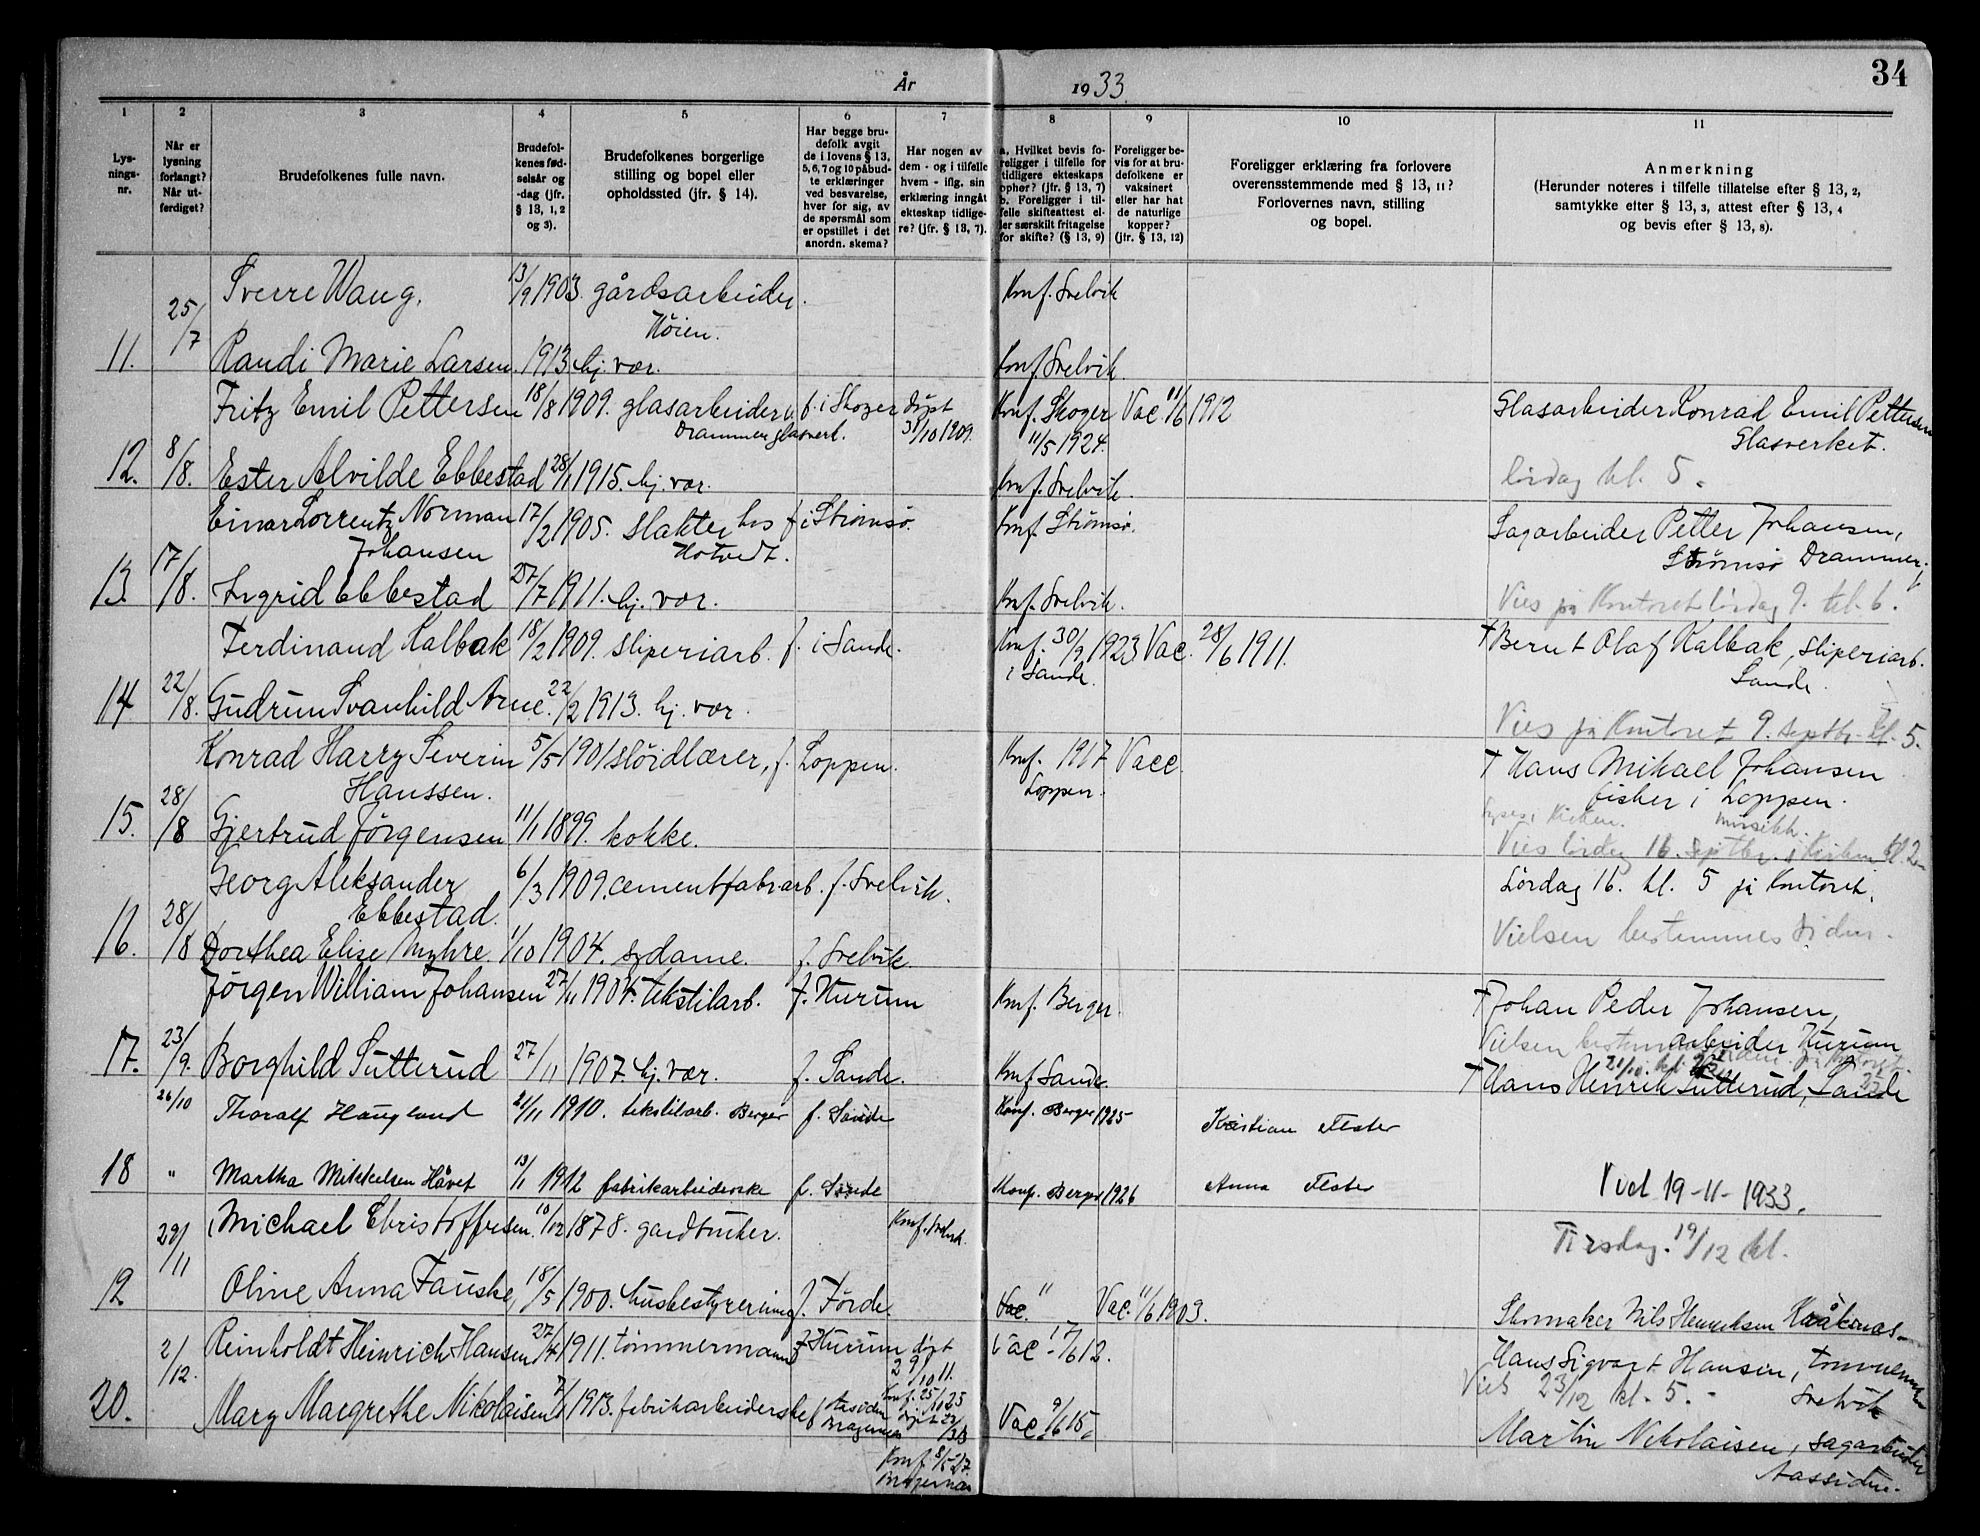 34
År 1933
1 2 3 4 5 6 7 8 9 10 11
Lys-
nings-
nr.
Når er
lysning
forlangt?
Når ut-
ferdiget?
Brudefolkenes fulle navn.
Brudefol-
kenes fød-
selsår og
-dag (jfr.
§ 13, 1, 2
og 3).
Brudefolkenes borgerlige
stilling og bopel eller
opholdssted (jfr. § 14).
Har begge bru-
defolk avgit
de i lovens § 13,
5, 6, 7 og 10 påbud-
te erklæringer
ved besvarelse,
hver for sig, av
de spørsmål som
er opstillet i det
anordn. skema?
Har nogen av
dem - og i tilfelle
hvem - iflg. sin
erklæring inngåt
ekteskap tidlige-
re? (jfr. § 13, 7).
a. Hvilket bevis fo-
religger i tilfelle for
tidligere ekteskaps
ophør? (jfr. § 13, 7)
b. Foreligger i til-
felle skifteattest el-
ler særskilt fritagelse
for skifte? (§ 13, 9)
Foreligger be-
vis for at bru-
defolkene er
vaksinert
eller har hat
de naturlige
kopper?
(jfr. § 13, 12)
Foreligger erklæring fra forlovere
overensstemmende med § 13, 11?
Forlovernes navn, stilling
og bopel.
Anmerkning
(Herunder noteres i tilfelle tillatelse efter § 13, 2,
samtykke efter § 13, 3, attest efter § 13, 4
og bevis efter § 13, 8).
Sverre Waug. 13/9 1903. gårdsarbeider. Konf. Svelvik
25/7 Höien.
11. Randi Marie Larsen. 1913 hj. vær. Konf. Svelvik
Fritz Emil Pettersen 18/8 1909. glasarbeider f. i Skoger döpt Konf. Skoger Vac 11/6 1912 Glasarbeider Konrad Emil Pettersen
Drammen Glasverk. 31/10 1909. 11/5 1924. Glasverket.
12. 8/8. Ester Alvilde Ebbestad 28/1 1915. hj. vær. Konf. Svelvik. lördag kl. 5.
Einar Lorrentz Norman 17/2 1905. slakter hos f. i Strömsö. Konf. Strömsö. Sagarbeider Petter Johansen,
Johansen Hotvedt. Strömsö Drammen.
13. 17/8. Ingrid Ebbestad 27/7 1911. hj. vær. Konf. Svelvik. Vies på Kontoret lördag 9. kl. 6.
Ferdinand Kalbak 18/2 1909. sliperiarb. f. i Sande. Konf. 30/9 1923 Vac. 28/6 1911. † Bernt Olaf Kalbak, sliperiarb.
i Sande. Sande.
14 22/8. Gudrun Svanhild Arne. 22/2 1913. hj. vær. Vies på Kontoret 9. septbr. kl. 5.
Konrad Harry Severin 5/5 1901 slöidlærer, f. Loppen. Konf. 1917 Vacc. † Hans Mikael Johansen
Hanssen. Loppen. fisker i Loppen.
15. 28/8 Gjertrud Jörgensen 11/1 1899. kokke. Vies lördag 16. Septbr. i Kirken kl. 2
Georg Aleksander 6/3 1909. cementfabr arb. f. Svelvik. Lördag 16. kl. 5 på Kontoret.
Ebbestad.
16. 28/8 Dorthea Elise Myhre 1/10 1904. sydame. f. Svelvik. Vielsen bestemmes siden.
Jörgen William Johansen 27/11 1904. tekstilarb. f. Hurum Konf. Berger. † Johan Peder Johansen,
Vielsen bestem arbeider Hurum
17. 23/9. Borghild Sutterud 27/11 1907. hj. vær. f. Sande. Konf Sande † Hans Henrik Sutterud, Sande
26/10 Thoralf Haugland 21/11 1910. tekstilarb. Berger f. Sande Konf. Berger 1925 Kristian Flester
18 " Martha Mikkelsen Håvet 13/1 1912 fabrikarbeiderske f. Sande Konf. Berger 1926 Anna Flester Viet 19-11-1933.
Michael Christoffersen. 10/12 1878. gardbruker. Konf. Svelvik. Tirsdag. 19/12 kl.
29/11
19 Oline Anna Fauske, 18/5 1900. husbestyrerinne f. Förde. Vac. Vac. 11/6 1909. Skomaker Nils Henriksen Kråkenes
2/12. Reinholdt Heinrich Hansen 27/4 1911. tömmermann f. Hurum döpt Vac. 17/6 12. Hans Sigvart Hansen, tömmerm
29/10 11. Vies 23/12 kl. 5. Svelvik
Konf. 25/1 25
20. Mary Margrethe Nikolaisen 7/1 1913. fabrikarbeiderske f. Aasiden Bragernes Vac 9/6 15. Martin Nikolaisen, sagarbeider
Konf 8/5 27. Aassiden.
Bragernæs